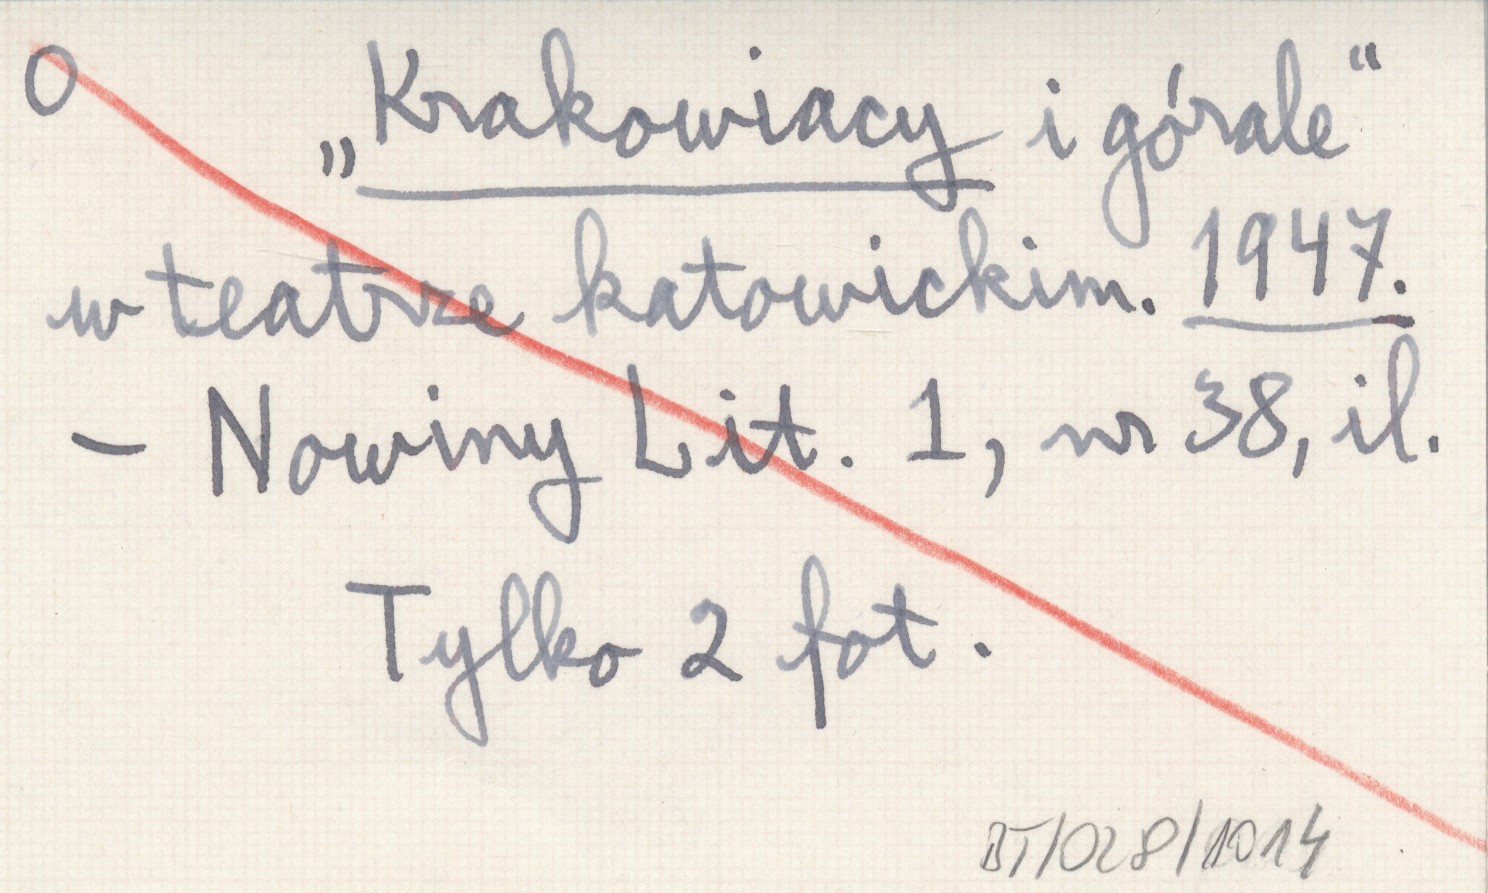 O „Krakowiacy i górale“
w teatrze katowickim. 1947.
– Nowiny Lit. 1, nr 38, il.
Tylko 2 fot.
BT/028/1014